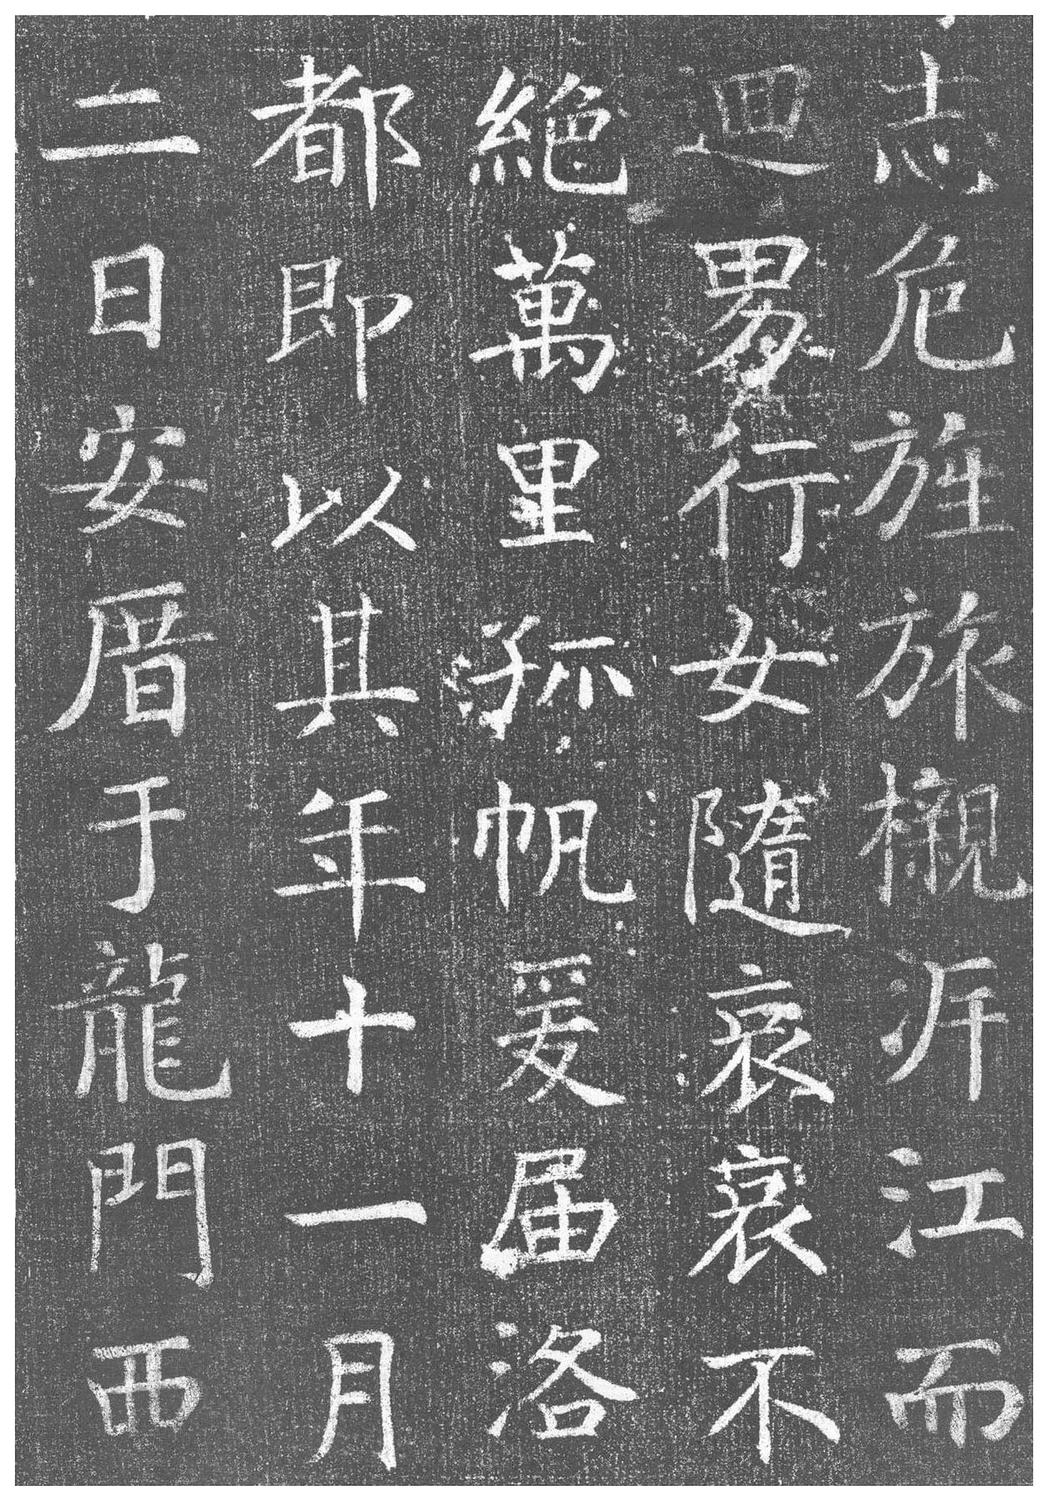 志危旌旅櫬泝江而
迴男行女隨哀哀不
絕萬里孤帆爰届洛
都即以其年十一月
二日安厝于龍門西